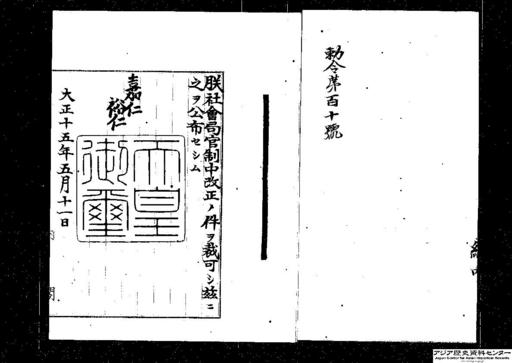 勅令第百十號
朕社會局官制中改正ノ件ヲ裁可シ茲ニ
之ヲ公布セシム
嘉仁
裕仁
天皇
御璽
大正十五年五月十一日
内
閣
アジア歴史資料センター
Japan Center for Asian Historical Records